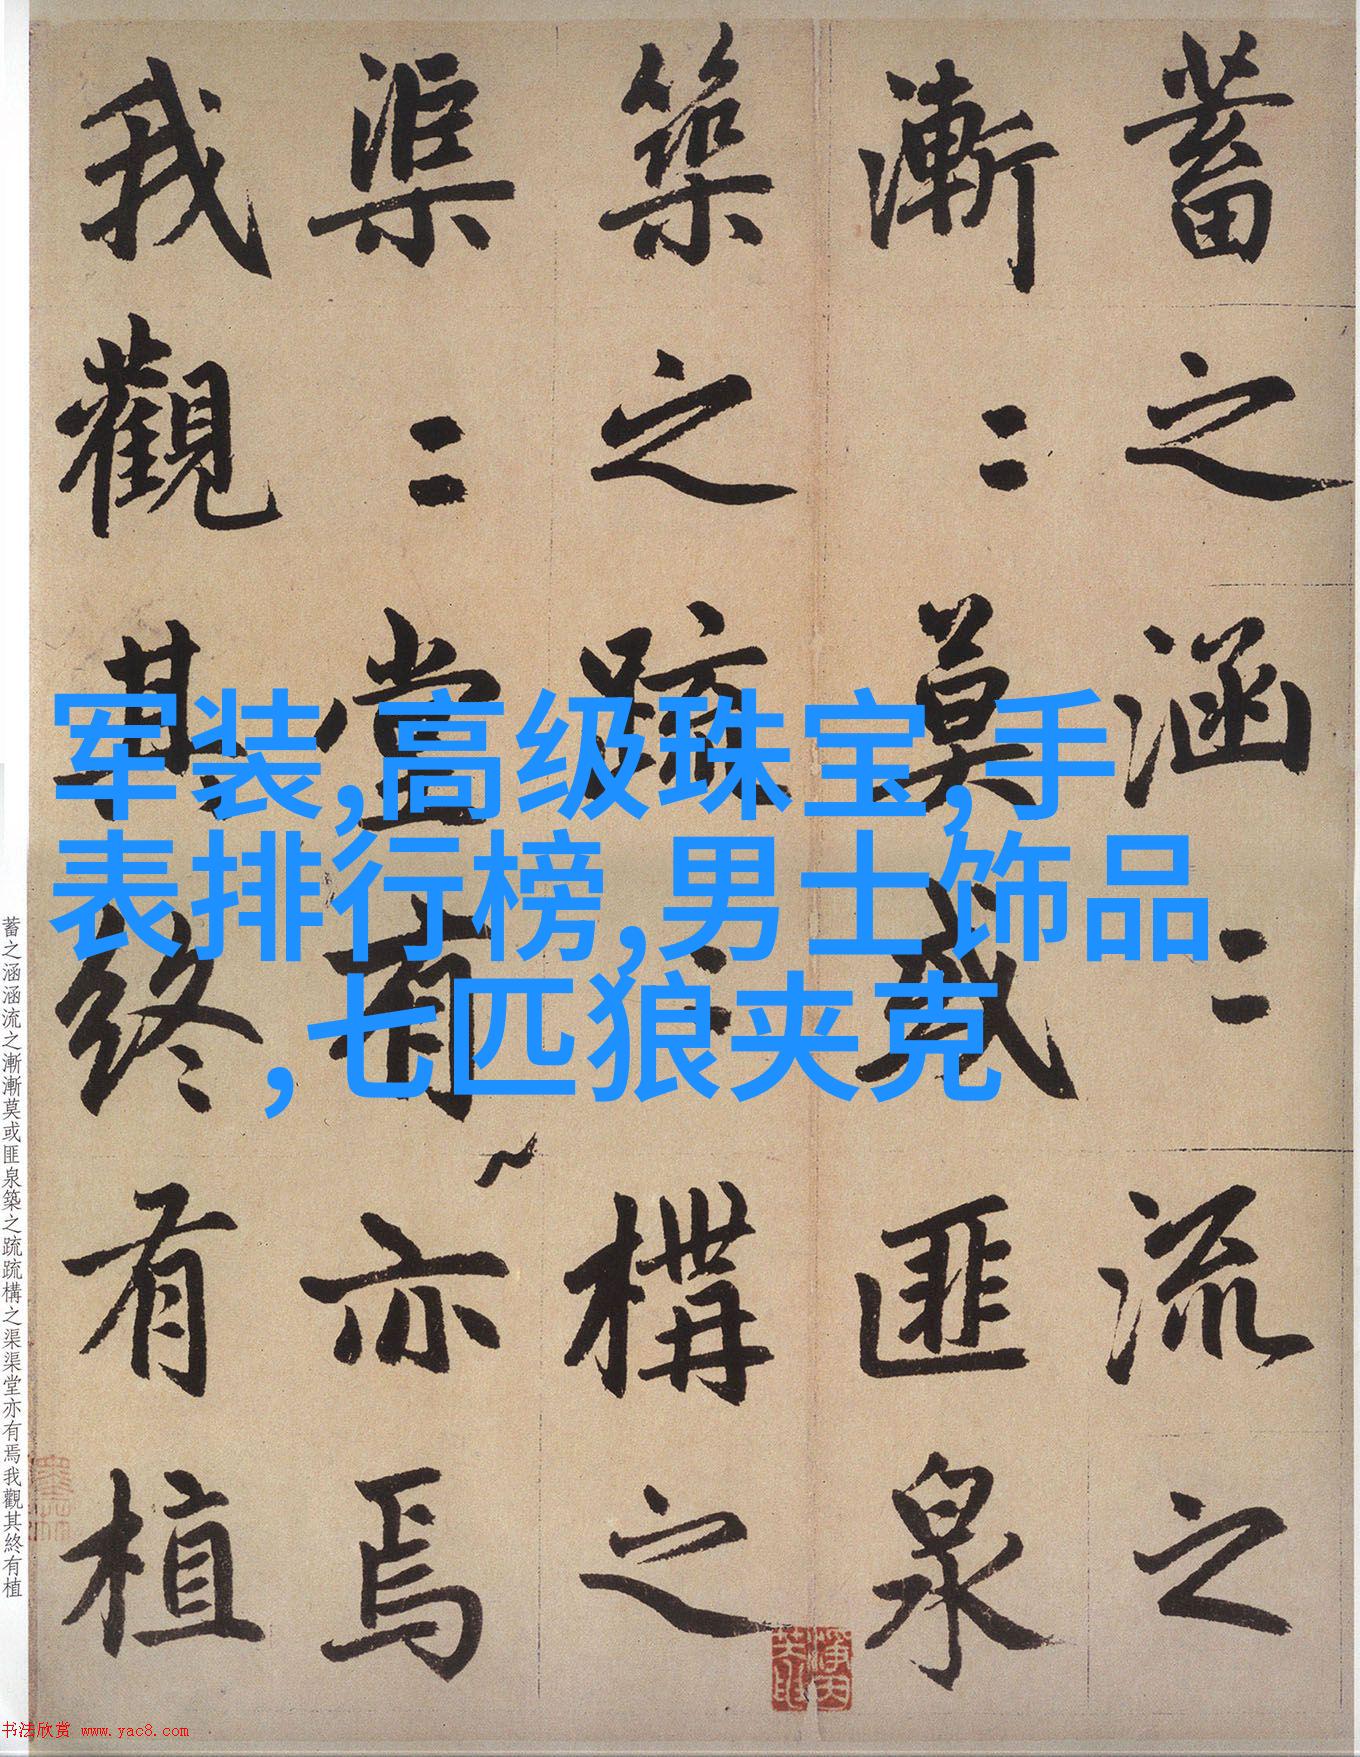 蓄之涵〻流之
漸〻莫或匪泉
築之疏〻構之
渠〻堂有亦焉
我觀其終有植
军装,高级珠宝,手
表排行榜,男士饰品
,七匹狼夹克
蓄之涵涵流之漸漸莫或匪泉築之疏疏構之渠渠堂亦有焉我觀其終有植
书法欣赏 www.yac8.com